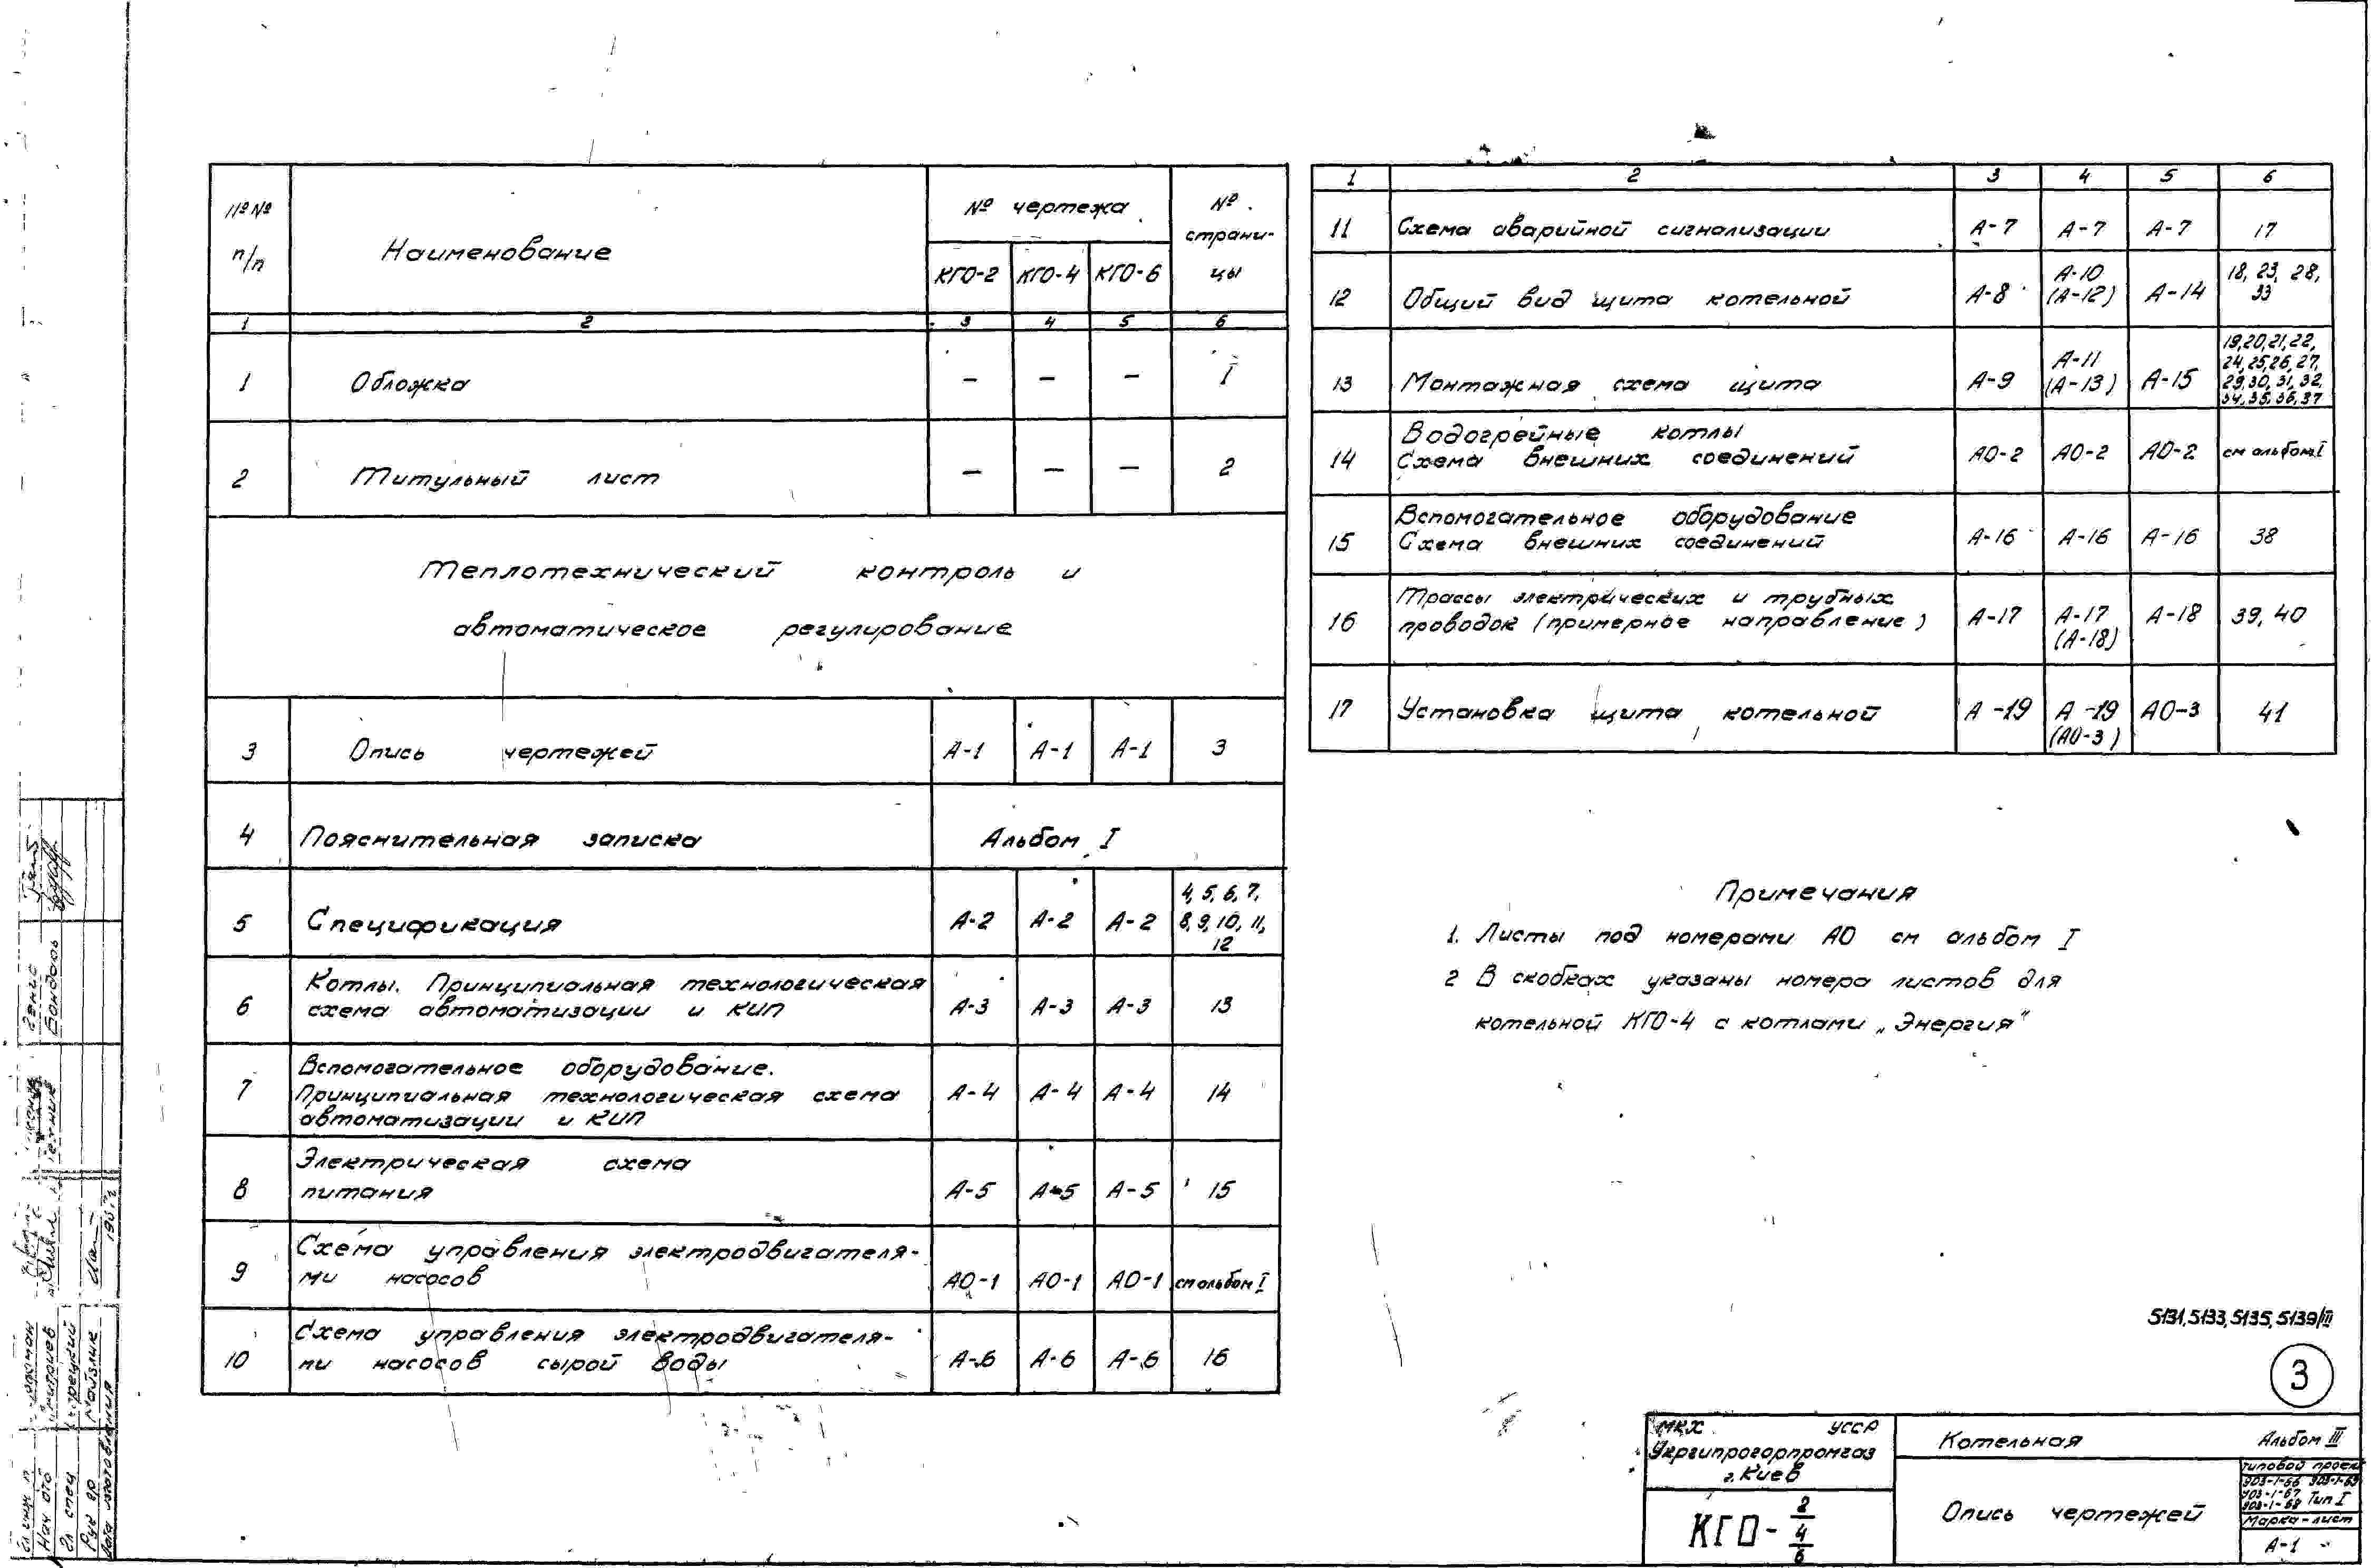 №№ п/п
Наименование
№ чертежа
№ страни-
цы
КГО-2 КГО-4 КГО-6
1 2 3 4 5 6
1 Обложка — — — 1
2 Титульный лист — — — 2
Теплотехнический контроль и
автоматическое регулирование
3 Опись чертежей А-1 А-1 А-1 3
4 Пояснительная записка Альбом I
5 Спецификация А-2 А-2 А-2 4, 5, 6, 7,
8, 9, 10, 11,
12
Котлы. Принципиальная технологическая
6 схема автоматизации и КИП А-3 А-3 А-3 13
Вспомогательное оборудование.
7 Принципиальная технологическая схема А-4 А-4 А-4 14
автоматизации и КИП
Электрическая схема
8 питания А-5 А-5 А-5 15
Схема управления электродвигателя-
9 ми насосов АО-1 АО-1 АО-1 см альбом I
Схема управления электродвигателя-
10 ми насосов сырой воды А-6 А-6 А-6 16
1 2 3 4 5 6
11 Схема аварийной сигнализации А-7 А-7 А-7 17
12 Общий вид щита котельной А-8 А-10 (А-12) А-14 18, 23, 28,
33
13 Монтажная схема щита А-9 А-11 (А-13) А-15 19, 20, 21, 22,
24, 25, 26, 27,
29, 30, 31, 32,
34, 35, 36, 37
Водогрейные котлы
14 Схема внешних соединений АО-2 АО-2 АО-2 см альбом I
Вспомогательное оборудование
15 Схема внешних соединений А-16 А-16 А-16 38
Трассы электрических и трубных
16 проводок (примерное направление) А-17 А-17 (А-18) А-18 39, 40
17 Установка щита котельной А-19 А-19 (АО-3) АО-3 41
Примечания
1. Листы под номерами АО см альбом I
2 В скобках указаны номера листов для
котельной КГО-4 с котлами „Энергия"
5131, 5133, 5135, 5139/III
3
МКХ УССР
Укргипрогорпромгаз
г. Киев
КГО- 2
4
6
Котельная
Альбом III
Опись чертежей
Типовой проект
903-1-66 903-1-69
903-1-67
903-1-68 Тип I
Марка-лист
А-1
Гл инж п
Нач отд
Гл спец
Рук гр Майзлик
Дата изготовления
Бондарь